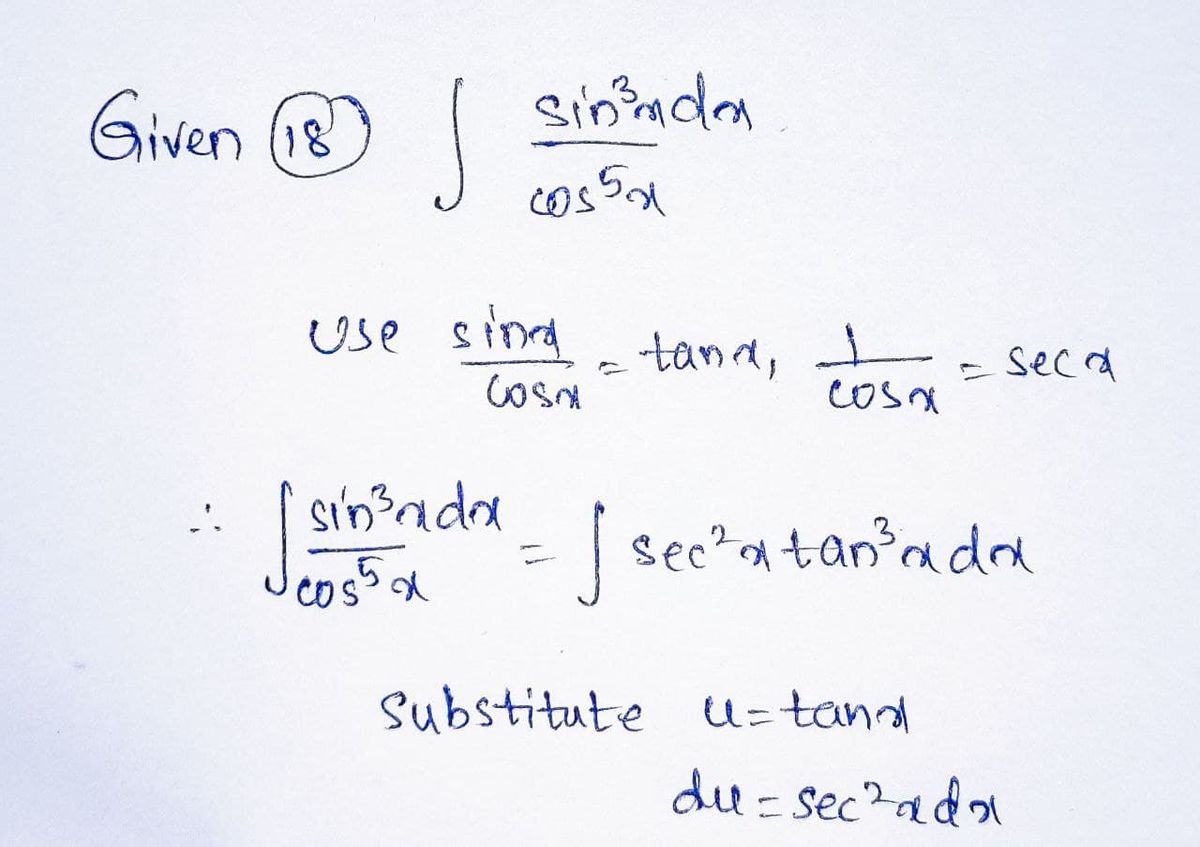 Given (18) ∫ sin³x dx / cos⁵x
Use sinx / cosx = tanx, 1 / cosx = secx
∴ ∫ sin³x dx / cos⁵x = ∫ sec²x tan³x dx
Substitute u = tanx
du = sec²x dx